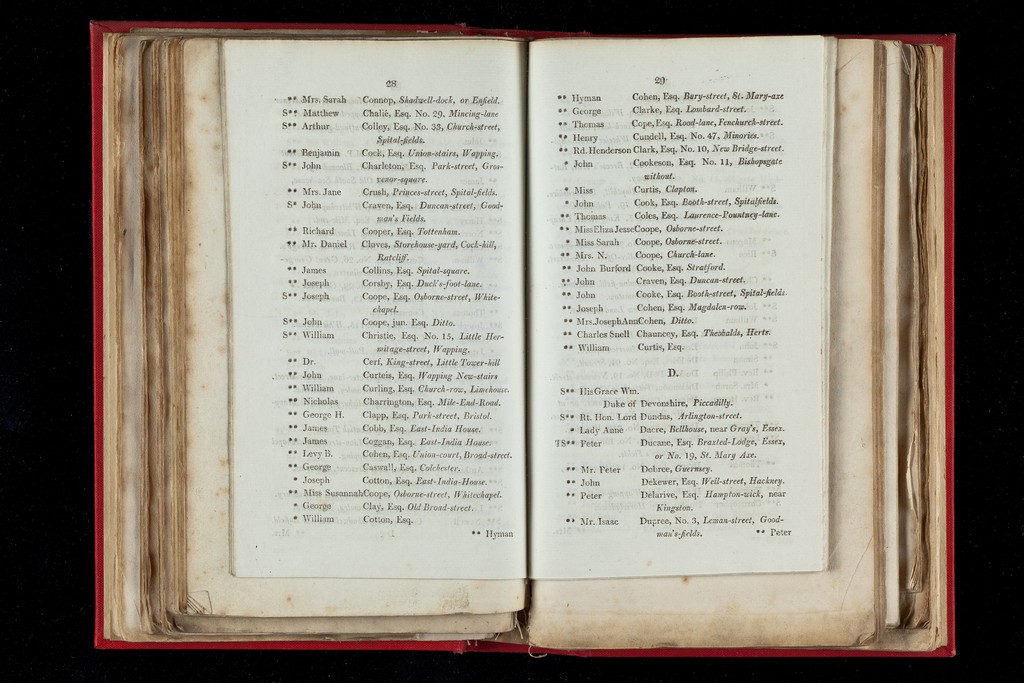 28
** Mrs. Sarah Connop, Shadwell-dock, or Enfield.
S** Matthew Chalié, Esq. No. 29, Mincing-lane
S** Arthur Colley, Esq. No. 33, Church-street,
Spital-fields.
** Benjamin Cock, Esq. Union-stairs, Wapping.
S** John Charleton, Esq. Park-street, Gros-
venor-square.
** Mrs. Jane Crush, Princes-street, Spital-fields.
S* John Craven, Esq. Duncan-street, Good-
man's Fields.
** Richard Cooper, Esq. Tottenham.
** Mr. Daniel Cloves, Storehouse-yard, Cock-hill,
Ratcliff.
** James Collins, Esq. Spital-square.
** Joseph Corsby, Esq. Duck's-foot-lane.
S** Joseph Coope, Esq. Osborne-street, White-
chapel.
S** John Coope, jun. Esq. Ditto.
S** William Christie, Esq. No. 15, Little Her-
mitage-street, Wapping.
** Dr. Cerf, King-street, Little Tower-hill
** John Curteis, Esq. Wapping New-stairs
** William Curling, Esq. Church-row, Limehouse.
** Nicholas Charrington, Esq. Mile-End-Road.
** George H. Clapp, Esq. Park-street, Bristol.
** James Cobb, Esq. East-India House.
** James Coggan, Esq. East-India House.
** Levy B. Cohen, Esq. Union-court, Broad-street.
** George Caswall, Esq. Colchester.
* Joseph Cotton, Esq. East-India-House.
** Miss Susannah Coope, Osborne-street, Whitechapel.
* George Clay, Esq. Old Broad-street.
* William Cotton, Esq.
** Hyman
29
** Hyman Cohen, Esq. Bury-street, St. Mary-axe
** George Clarke, Esq. Lombard-street.
** Thomas Cope, Esq. Rood-lane, Fenchurch-street.
** Henry Cundell, Esq. No. 47, Minories.
** Rd. Henderson Clark, Esq. No. 10, New Bridge-street.
* John Cookeson, Esq. No. 11, Bishopsgate
without.
* Miss Curtis, Clapton.
* John Cook, Esq. Booth-street, Spitalfields.
** Thomas Coles, Esq. Laurence-Pountney-lane.
** Miss Eliza Jesse Coope, Osborne-street.
* Miss Sarah Coope, Osborne-street.
** Mrs. N. Coope, Church-lane.
** John Burford Cooke, Esq. Stratford.
** John Craven, Esq. Duncan-street.
** John Cooke, Esq. Booth-street, Spital-fields.
** Joseph Cohen, Esq. Magdalen-row.
** Mrs. Joseph Ann Cohen, Ditto.
** Charles Snell Chauncey, Esq. Theobalds, Herts.
** William Curtis, Esq.
D.
S** His Grace Wm.
Duke of Devonshire, Piccadilly.
S** Rt. Hon. Lord Dundas, Arlington-street.
* Lady Anne Dacre, Bellhouse, near Gray's, Essex.
TS** Peter Ducane, Esq. Braxted-Lodge, Essex,
or No. 19, St. Mary Axe.
** Mr. Peter Dobree, Guernsey.
** John Dekewer, Esq. Well-street, Hackney.
** Peter Delarive, Esq. Hampton-wick, near
Kingston.
** Mr. Isaac Dupree, No. 3, Leman-street, Good-
man's-fields.
** Peter